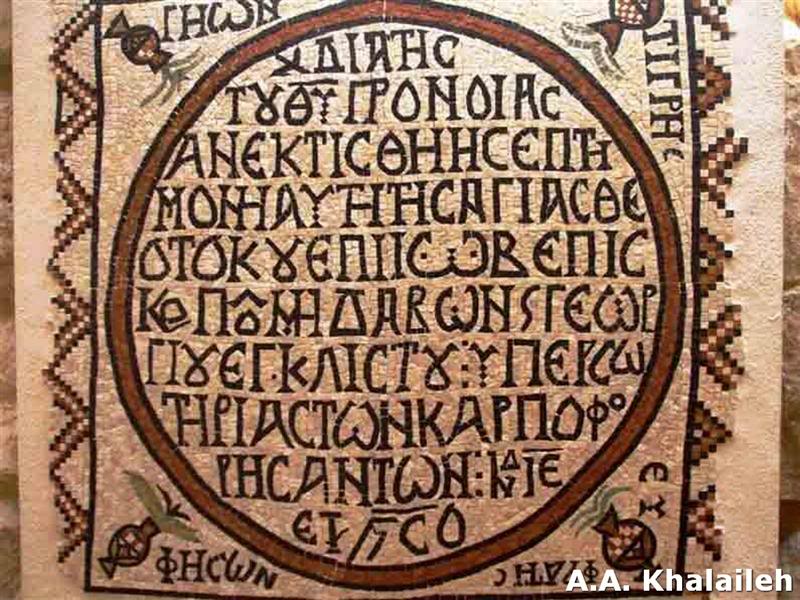 ΓΗΩΝ
ΤΙΓΡΗϹ
ΔΙΑΤΗϹ
ΤȢΘῩΠΡΟΝΟΙΑϹ
ΑΝΕΚΤΙϹΘΗΗϹΕΠΤΗ
ΜΟΝΗΑΥΤΗΤΗϹΑΓΙΑϹΘΕ
ΟΤΟΚȢΕΠΙΙΩΒΕΠΙϹ
ΚΟΠȢΜΗΔΑΒΩΝϚΓΕΩΡ
ΓΙȢΕΓΚΛΙϹΤȢ:ΥΠΕΡϹΩ
ΤΗΡΙΑϹΤΩΝΚΑΡΠΟΦΟ
ΡΗϹΑΝΤΩΝ:ΙΝΔΙΕ
ΕΤ ϚϹΟ
ΦΗϹΩΝ
ΕΥ
A.A. Khalaileh